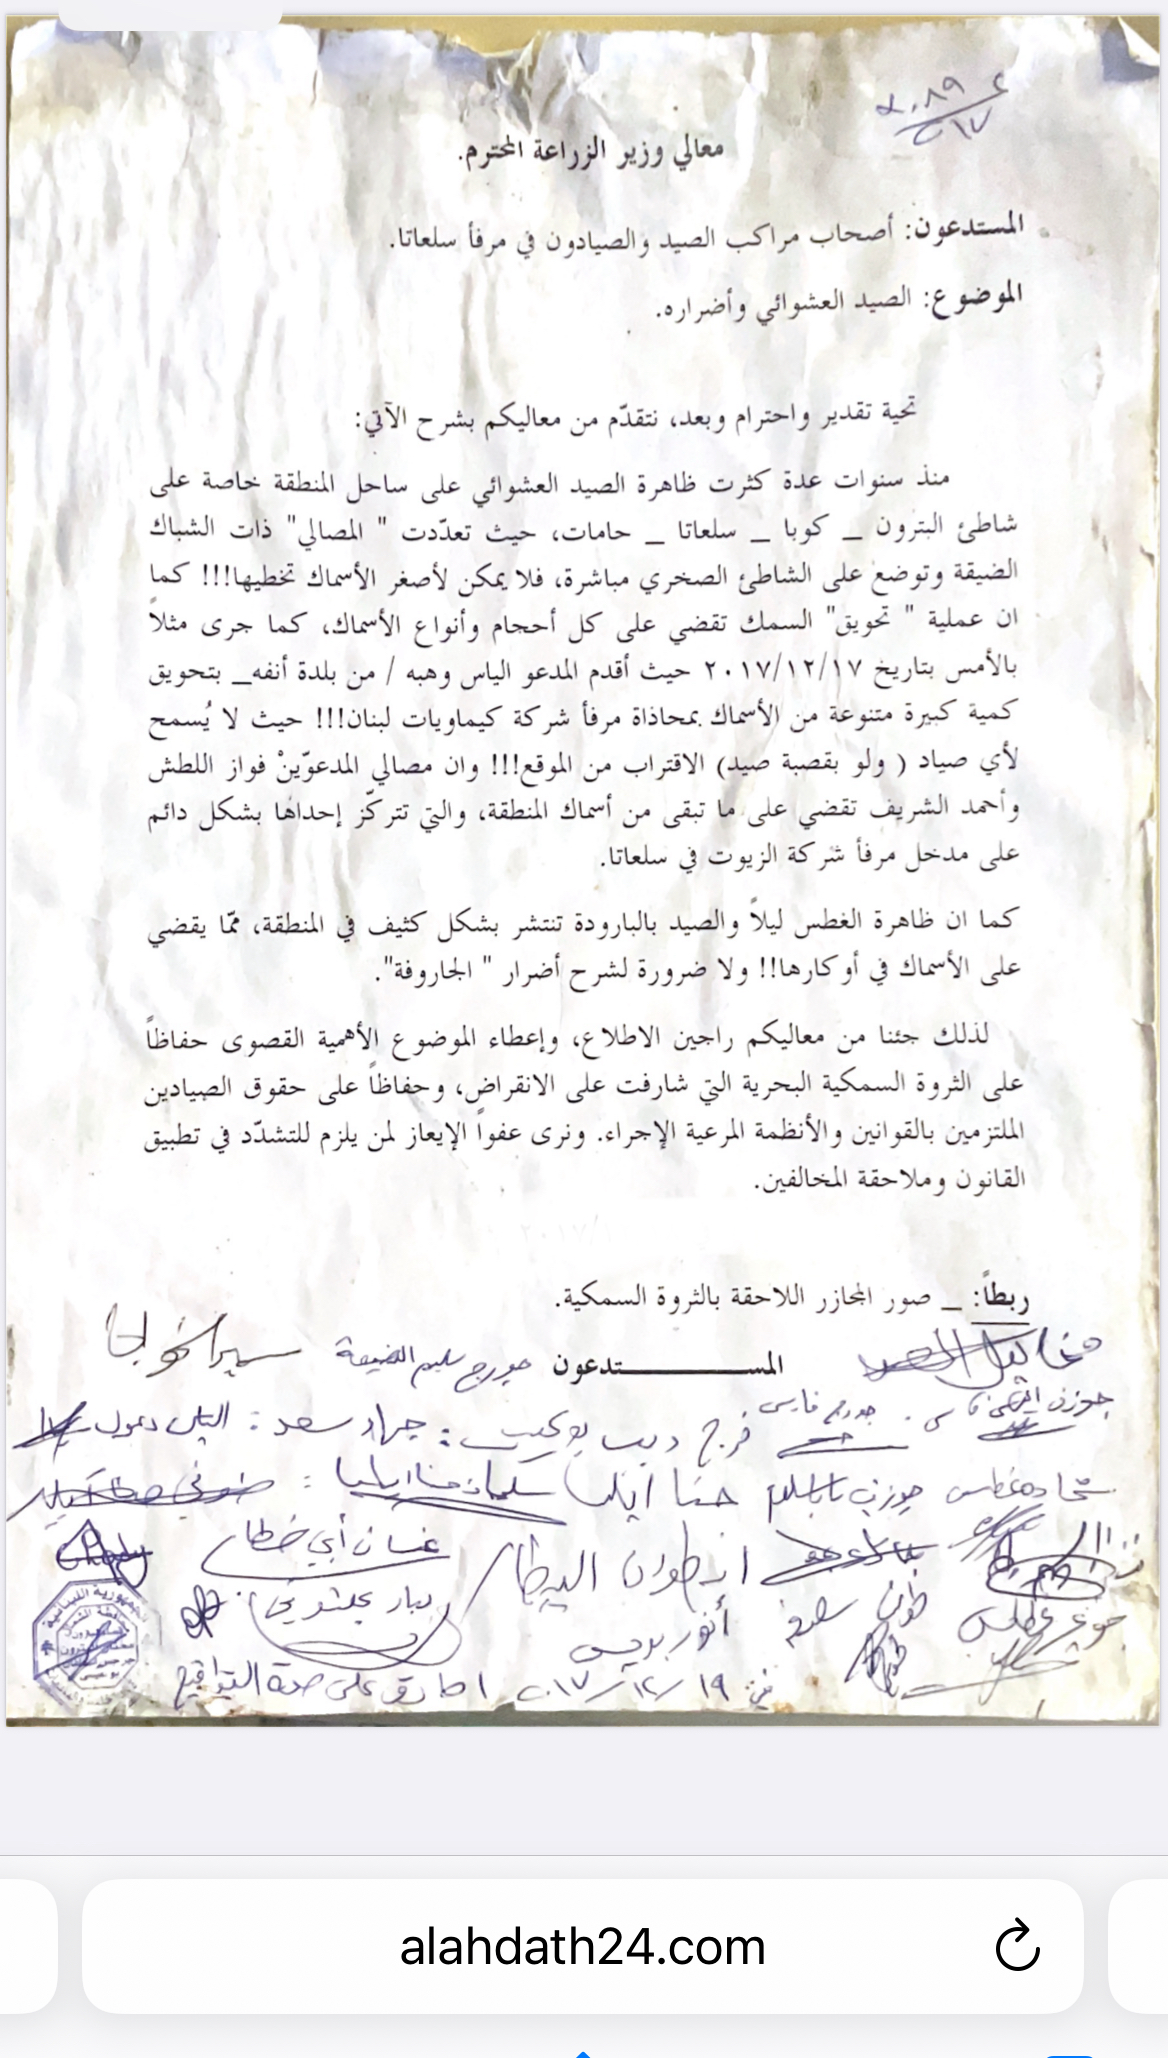 معالي وزير الزراعة المحترم.
المستدعون: أصحاب مراكب الصيد والصيادون في مرفأ سلعاتا.
الموضوع: الصيد العشوائي وأضراره.
تحية تقدير واحترام وبعد، نتقدّم من معاليكم بشرح الآتي:
منذ سنوات عدة كثرت ظاهرة الصيد العشوائي على ساحل المنطقة خاصة على
شاطئ البترون _ كوبا _ سلعاتا _ حامات، حيث تعدّدت " المصالي" ذات الشباك
الضيقة وتوضع على الشاطئ الصخري مباشرة، فلا يمكن لأصغر الأسماك تخطيها!!! كما
ان عملية " تحويق" السمك تقضي على كل أحجام وأنواع الأسماك، كما جرى مثلاً
بالأمس بتاريخ ٢٠١٧/١٢/١٧ حيث أقدم المدعو الياس وهبه / من بلدة أنفه_ بتحويق
كمية كبيرة متنوعة من الأسماك بمحاذاة مرفأ شركة كيماويات لبنان!!! حيث لا يُسمح
لأي صياد ( ولو بقصبة صيد) الاقتراب من الموقع!!! وان مصالي المدعوّينْ فواز اللطش
وأحمد الشريف تقضي على ما تبقى من أسماك المنطقة، والتي تتركّز إحداها بشكل دائم
على مدخل مرفأ شركة الزيوت في سلعاتا.
كما ان ظاهرة الغطس ليلاً والصيد بالبارودة تنتشر بشكل كثيف في المنطقة، ممّا يقضي
على الأسماك في أوكارها!! ولا ضرورة لشرح أضرار " الجاروفة".
لذلك جئنا من معاليكم راجين الاطلاع، وإعطاء الموضوع الأهمية القصوى حفاظاً
على الثروة السمكية البحرية التي شارفت على الانقراض، وحفاظاً على حقوق الصيادين
الملتزمين بالقوانين والأنظمة المرعية الإجراء. ونرى عفواً الإيعاز لمن يلزم للتشدّد في تطبيق
القانون وملاحقة المخالفين.
ربطاً: _ صور المجازر اللاحقة بالثروة السمكية.
المستدعون جورج سليم
جورج فارس
فرج ديب : جهاد سعد :
حنا ايليا سليمان حنا ايليا :
انطون البيطار غسان أبي خطار
طوني أنور بيار
في ١٩/١٢/٢٠١٧ اصادق على صحة التواقيع
alahdath24.com